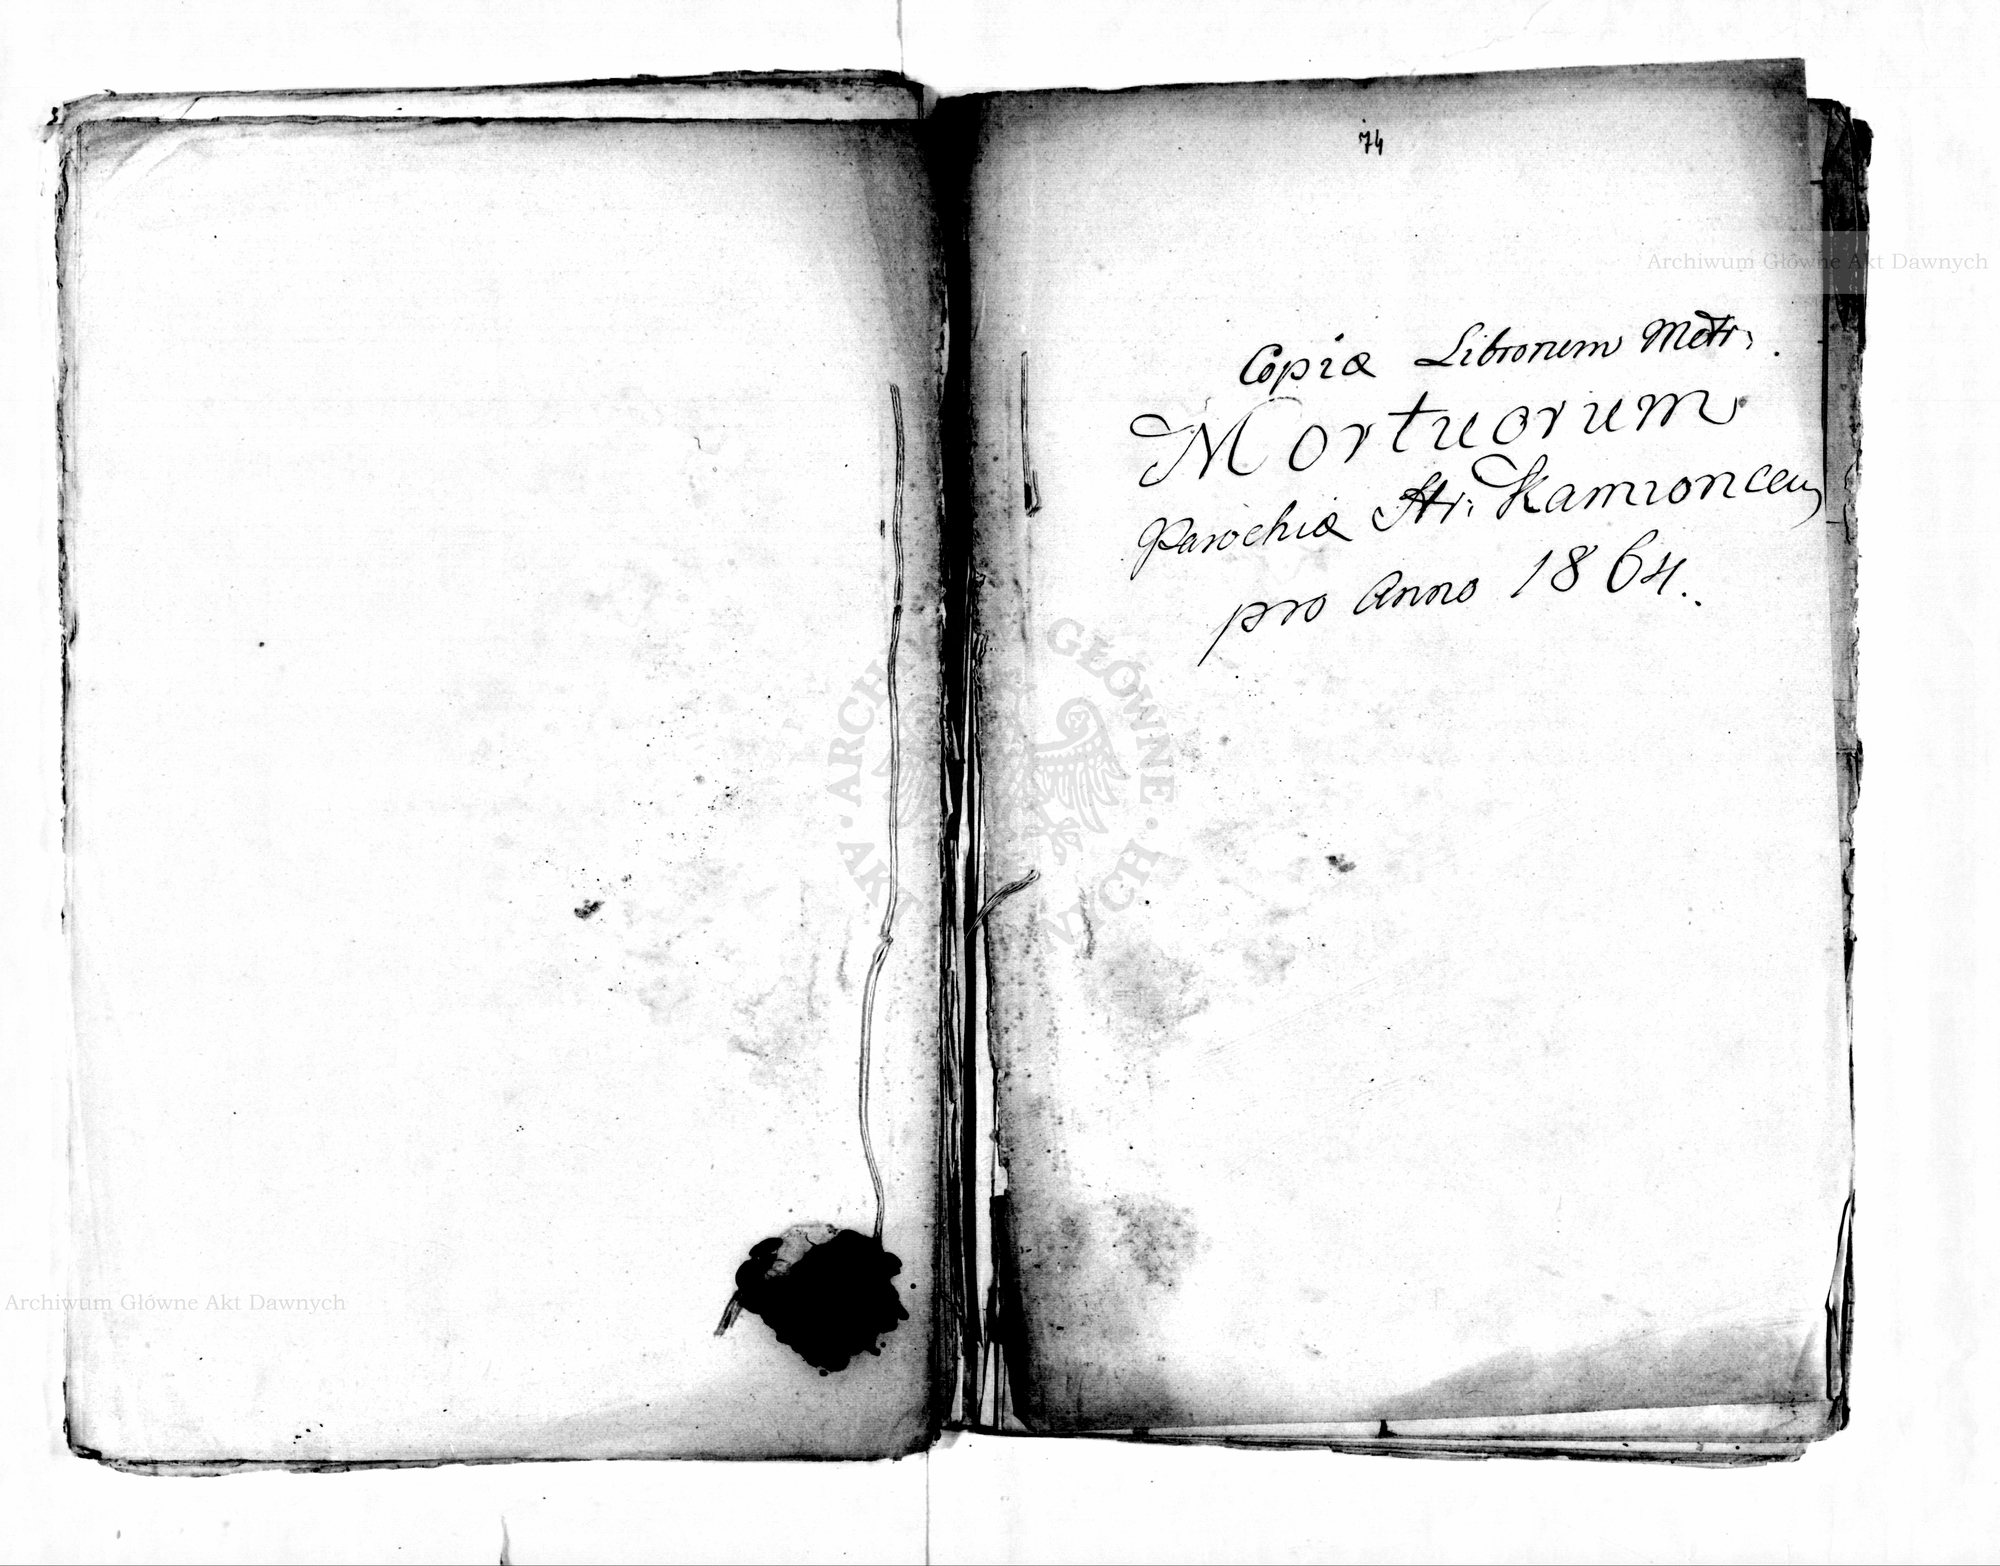 74
Archiwum Główne Akt Dawnych
Copiæ Librorum Metr.
Mortuorum
Parochiæ Str: Kamioncen
pro Anno 1864.
ARCHIWUM GŁÓWNE
AKT WYCH
Archiwum Główne Akt Dawnych